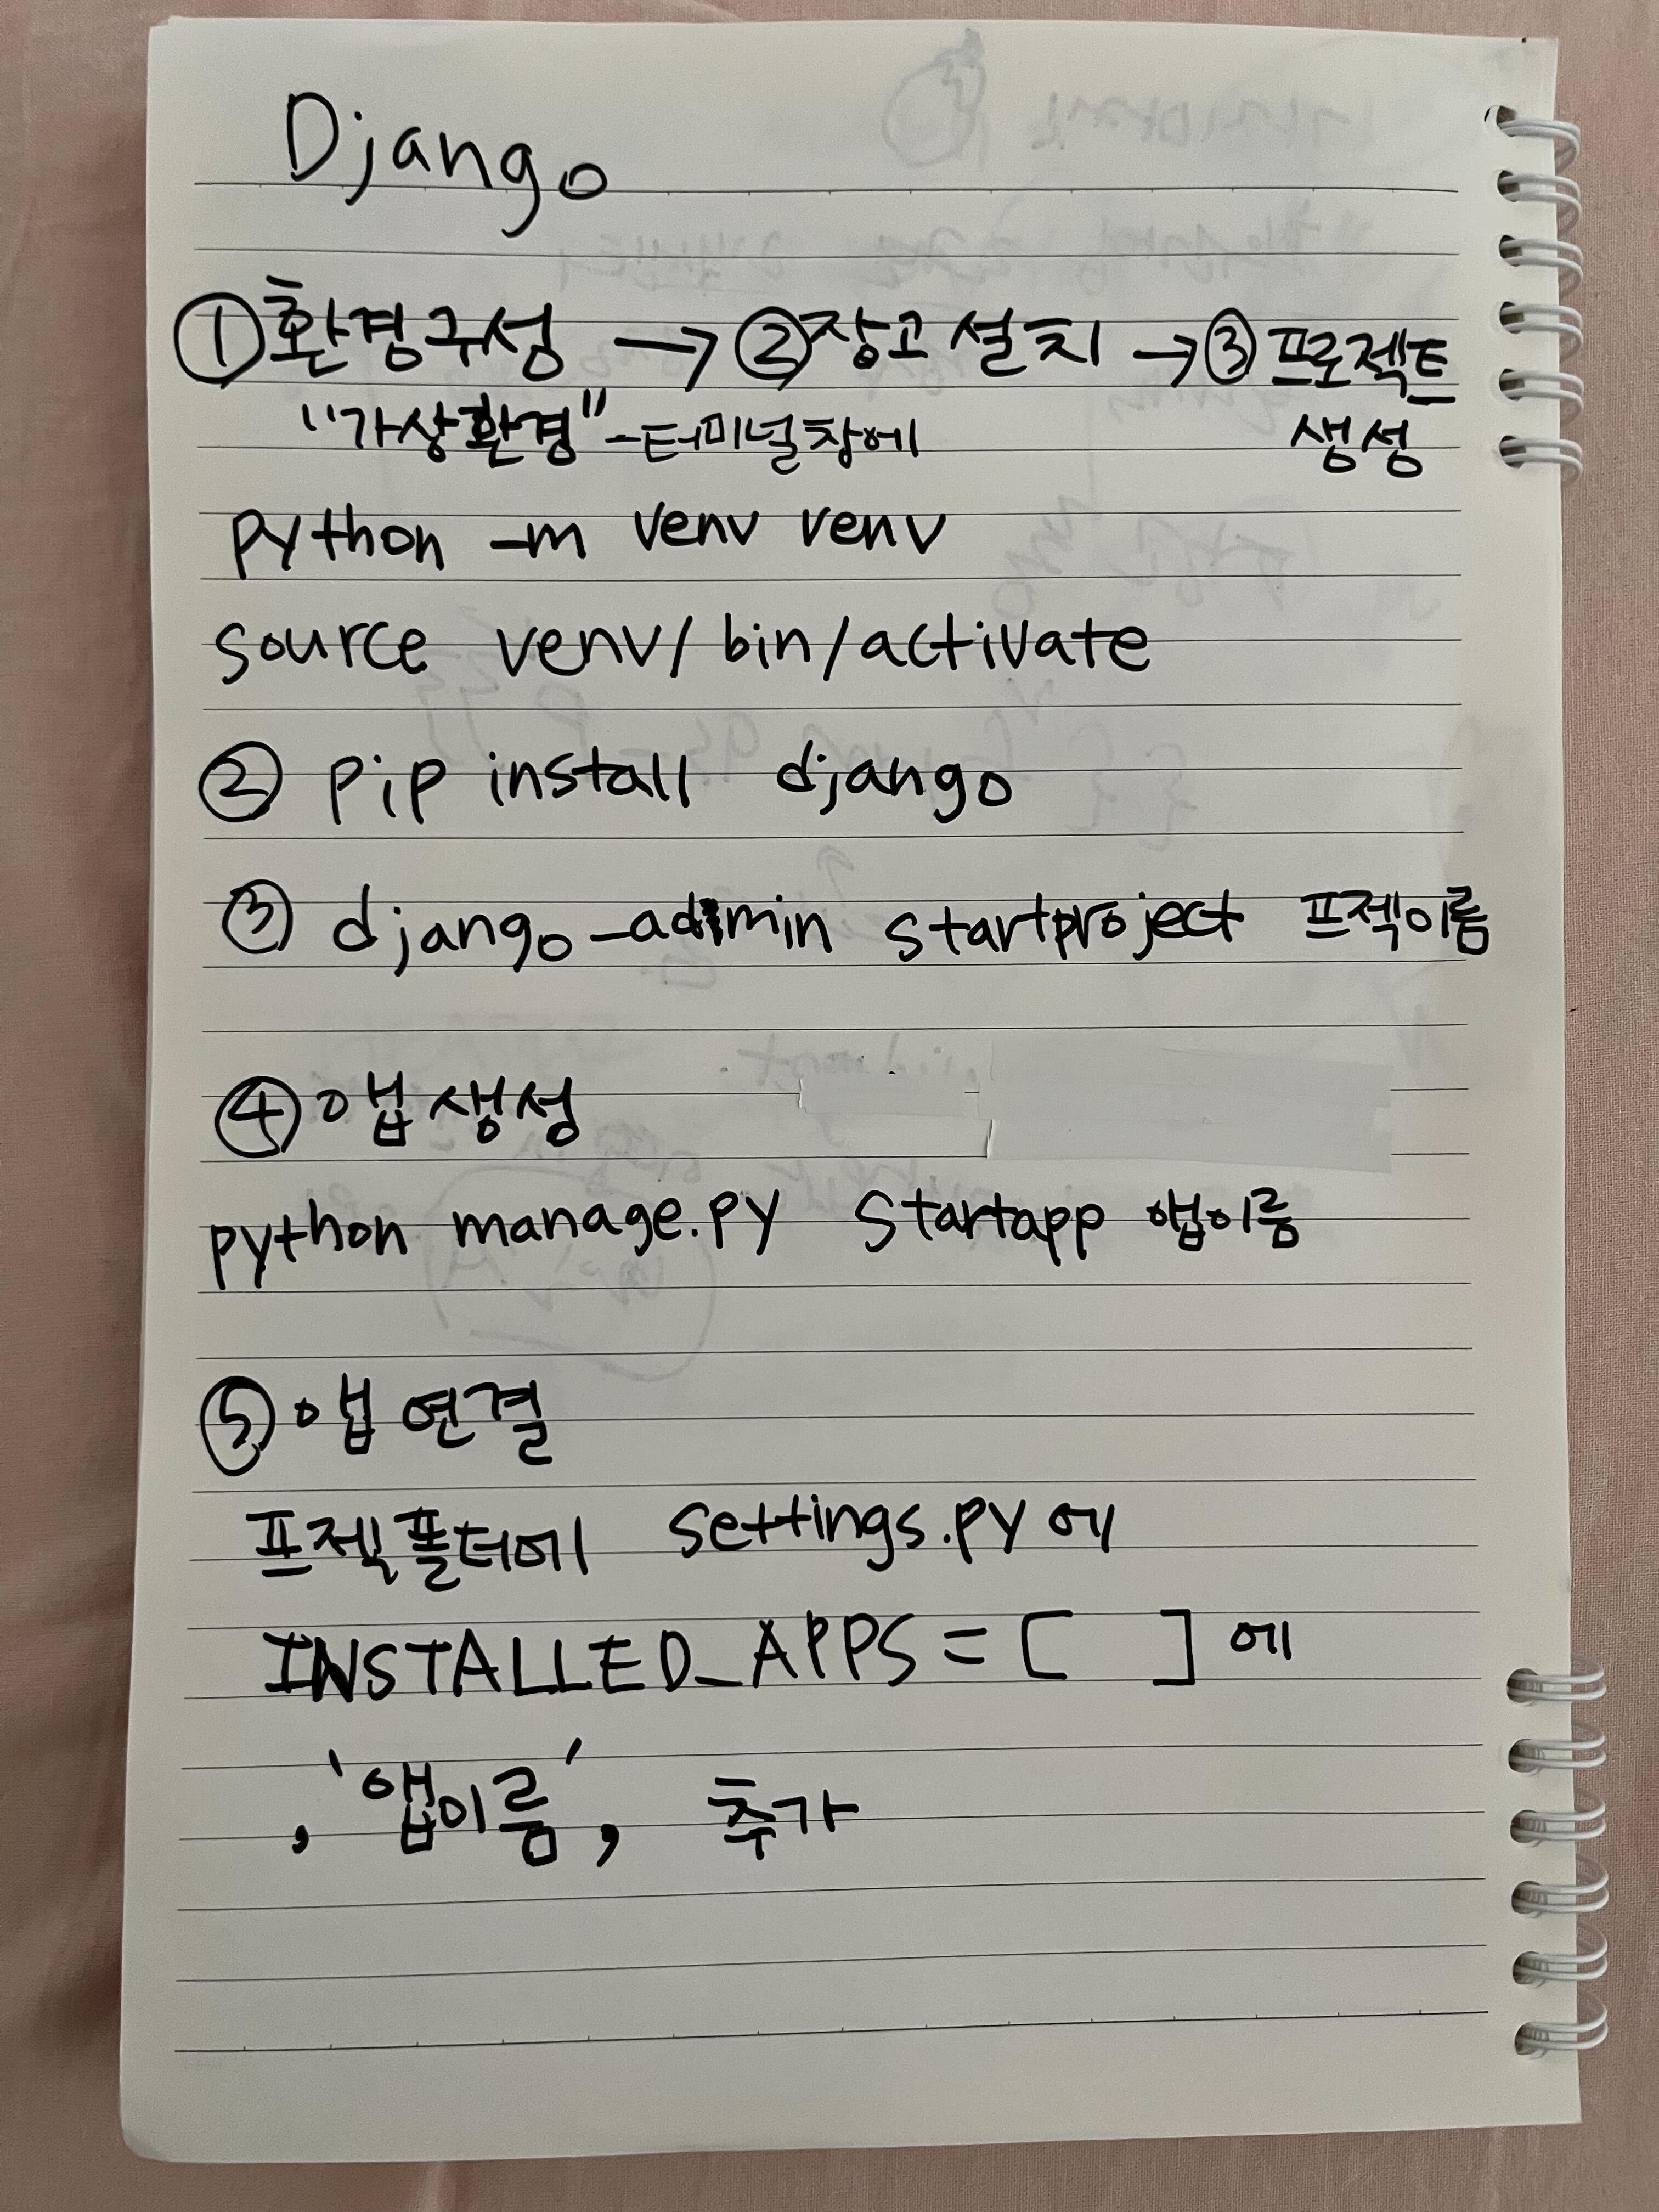 Django
①환경구성 → ②장고 설치 → ③ 프로젝트
"가상환경" - 터미널창에 생성
python -m venv venv
source venv/bin/activate
② pip install django
③ django-admin startproject 프젝이름
④ 앱 생성
python manage.py startapp 앱이름
⑤ 앱 연결
프젝폴더에 settings.py에
INSTALLED_APPS = [ ] 에
, '앱이름', 추가